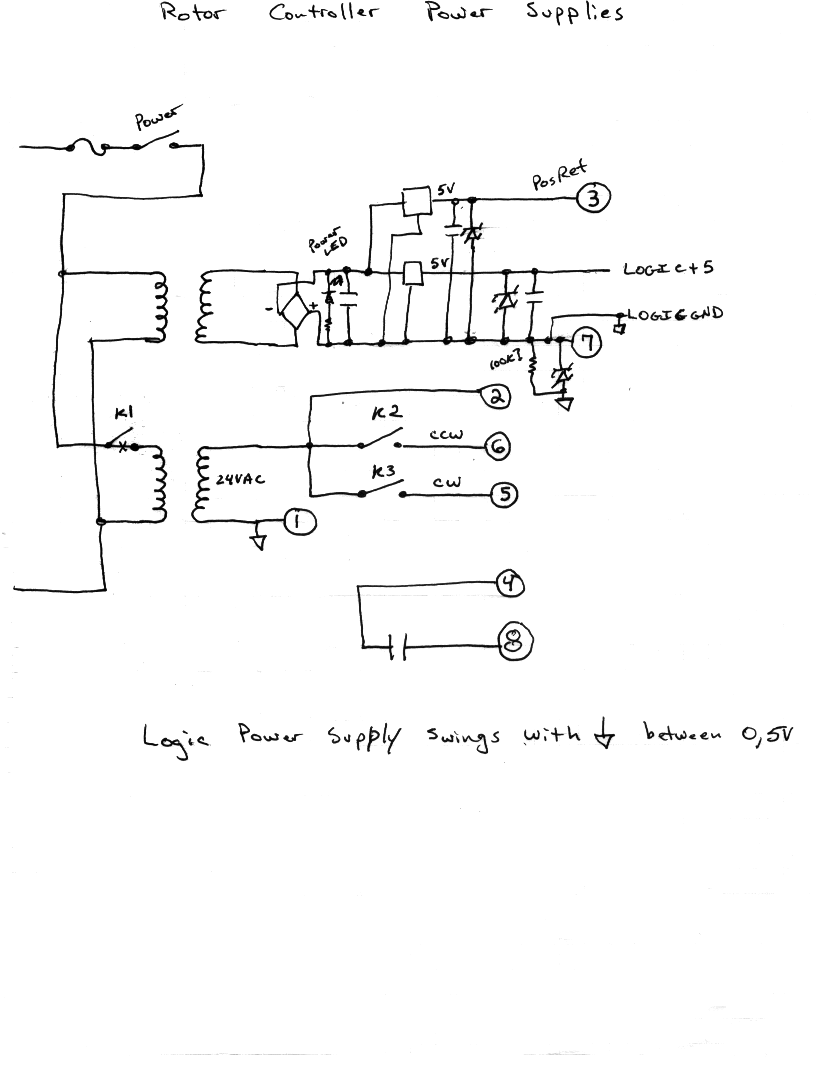 Rotor Controller Power Supplies
Power
PosRet
5V
3
Power
LED
5V
LOGIC+5
- +
LOGIC GND
7
100K
2
K1
K2
CCW
6
24VAC
K3
CW
5
1
4
8
Logic Power Supply swings with between 0,5V